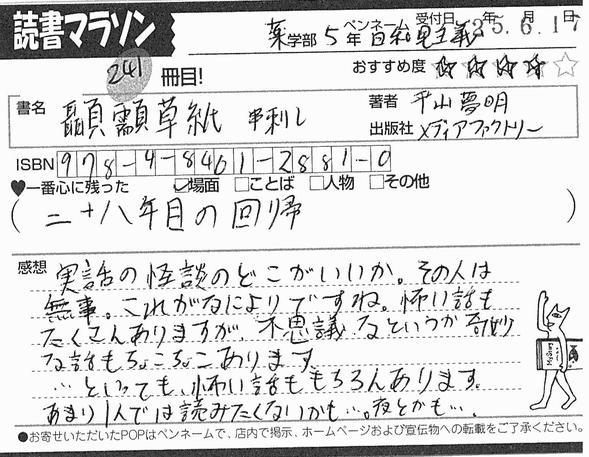 読書マラソン
薬学部 5年 ペンネーム 百和電主義 受付日 25年6.月17日
241 冊目!
おすすめ度 ★★★★☆
書名 顳顬草紙 串刺し
著者 平山夢明
出版社 メディアファクトリー
ISBN 978-4-8401-2881-0
♥一番心に残った ☑場面 □ことば □人物 □その他
(二十八年目の回帰)
感想 実話の怪談のどこがいいか。その人は
無事。これがなによりですね。怖い話も
たくさんありますが、不思議なというか奇妙
な話もちょこちょこあります。
…といっても、怖い話ももちろんあります。
あまり1人では読みたくないかも…。夜とかも…。
●お寄せいただいたPOPはペンネームで、店内で掲示、ホームページおよび宣伝物への転載をご了承ください。